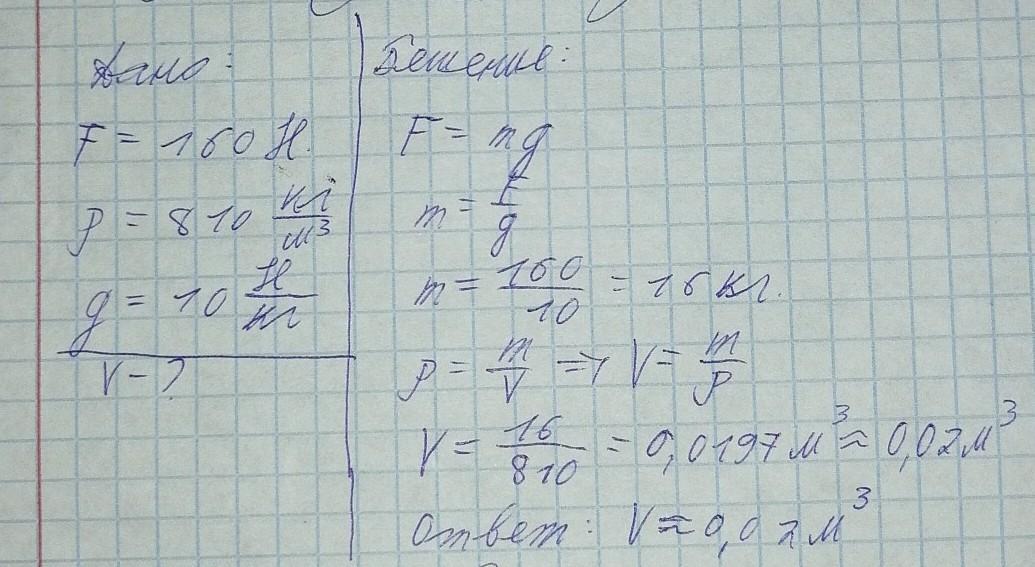 Дано:
F = 160 Н.
ρ = 810 кг/м³
g = 10 Н/кг
V - ?
Решение:
F = mg
m = F/g
m = 160/10 = 16 кг.
ρ = m/V => V = m/ρ
V = 16/810 = 0,0197 м³ ≈ 0,02 м³
Ответ: V ≈ 0,02 м³